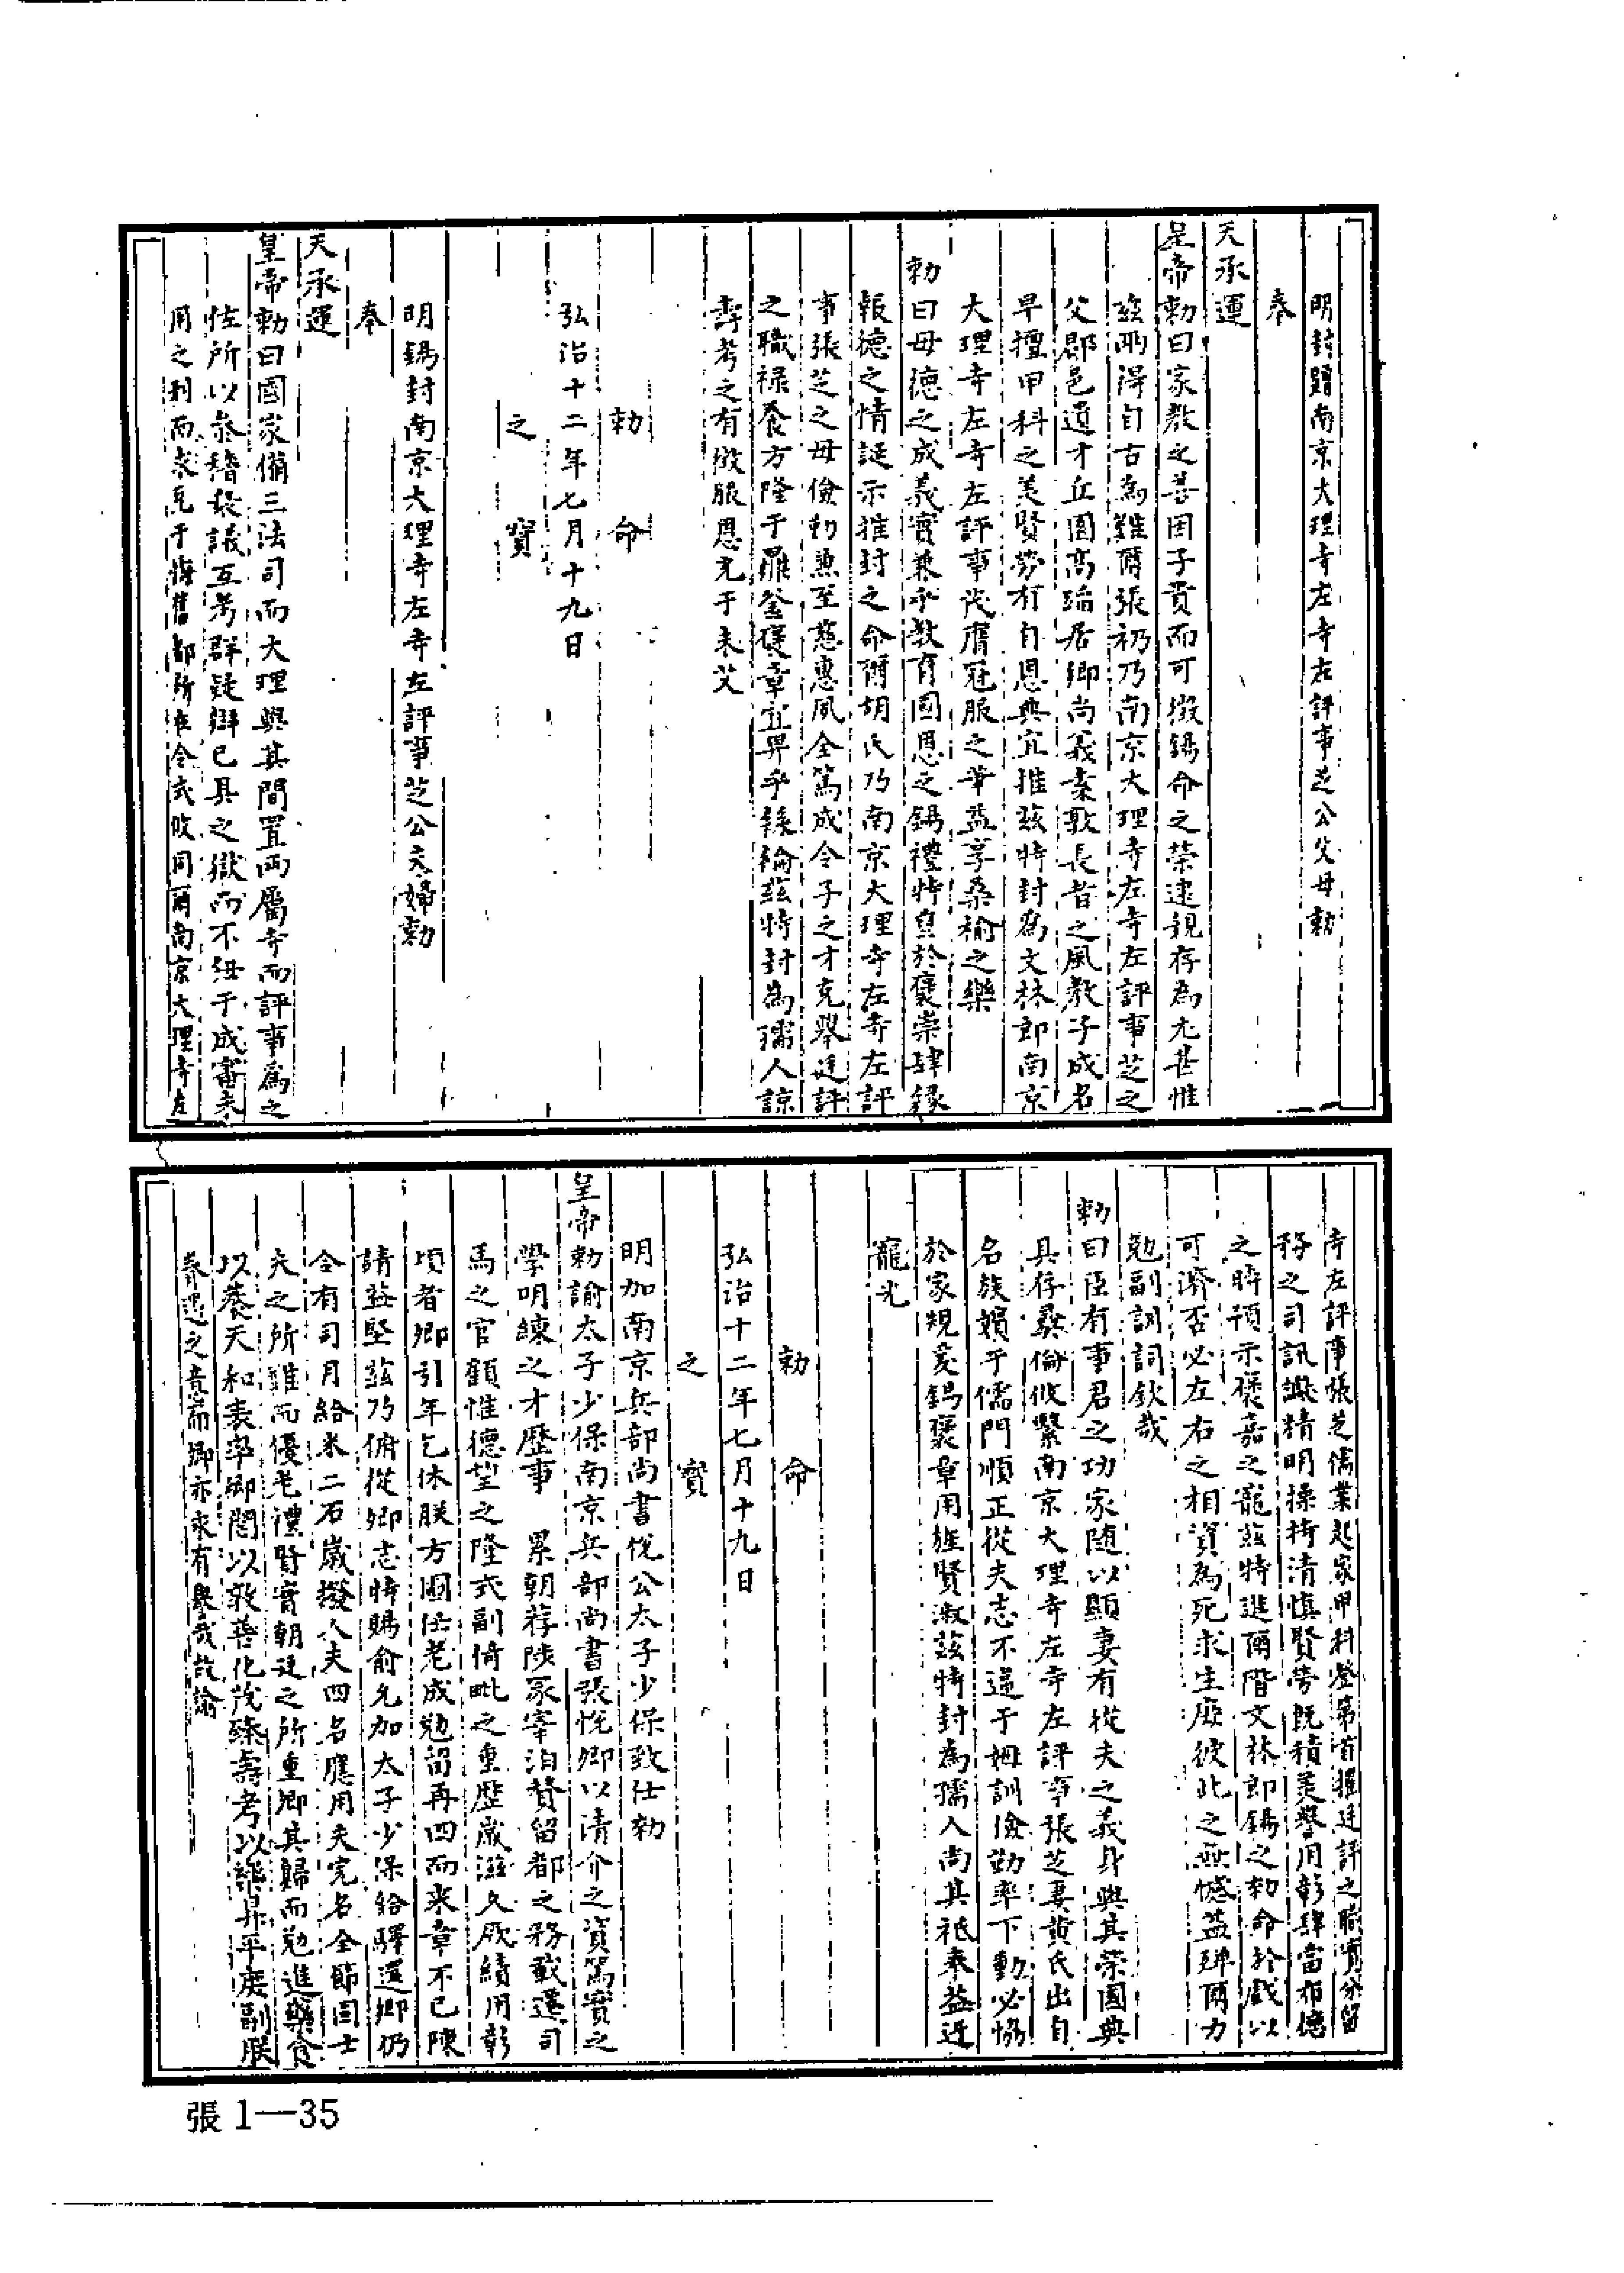 明封贈南京大理寺左寺左評事芝公父母勅
奉
天承運
皇帝勅曰家教之善因子貴而可徵錫命之榮逮親存為尤甚惟
茲兩得自古為難爾張礽乃南京大理寺左寺左評事芝之
父郡邑遺才丘園高蹈居鄉尚義素敦長者之風教子成名
早擅甲科之美賢勞有自恩典宜推茲特封為文林郎南京
大理寺左寺左評事茂膺冠服之華益享桑榆之樂
勅曰母德之成義實兼乎教育國恩之錫禮特皇於褒崇肆緣
報德之情誕示推封之命爾胡氏乃南京大理寺左寺左評
事張芝之母儉勤兼至慈惠夙全篤成令子之才克舉廷評
之職祿養方隆于鼎釜褒章宜畀乎絲綸茲特封為孺人諒
壽考之有徵服恩光于未艾
勅 命
弘治十二年七月十九日
之 寶
明錫封南京大理寺左寺左評事芝公夫婦勅
奉
天承運
皇帝勅曰國家備三法司而大理與其間置兩屬寺而評事為之
佐所以叅稽衆議互考群疑辯已具之獄而不紐于成審未
用之刑而求克于悔舊都所在令式攸同爾南京大理寺左
寺左評事張芝儒業起家甲科登第首擢廷評之職實分留
務之司訊讞精明操持清慎賢勞既積美譽用彰肆當布德
之時預示褒嘉之寵茲特進爾階文林郎錫之勅命於戲以
可濟否必左右之相資為死求生庶彼此之無憾益殫爾力
勉副訓詞欽哉
勅曰臣有事君之功家隨以顯妻有從夫之義身與其榮國典
具存彝倫攸繫南京大理寺左寺左評事張芝妻黃氏出自
名族嬪于儒門順正從夫志不違于姆訓儉勤率下動必恊
於家規爰錫褒章用旌賢淑茲特封為孺人尚其祗奉益迓
寵光
勅 命
弘治十二年七月十九日
之 寶
明加南京兵部尚書悅公太子少保致仕勅
皇帝勅諭太子少保南京兵部尚書張悅卿以清介之資篤實之
學明練之才歷事 累朝荐陟冢宰洎贊留都之務載遷司
馬之官顧惟德望之隆式副倚毗之重歷歲滋久厥績用彰
頃者卿引年乞休朕方圖任老成勉留再四而來章不已陳
請益堅茲乃俯從卿志特賜俞允加太子少保給驛還鄉仍
令有司月給米二石歲撥人夫四名應用夫完名全節固士
夫之所難而優老禮賢實朝廷之所重卿其歸而勉進藥食
以養天和表率鄉閭以敦善化茂臻壽考以樂昇平庶副朕
眷遇之意而卿亦永有譽哉故諭
張1—35